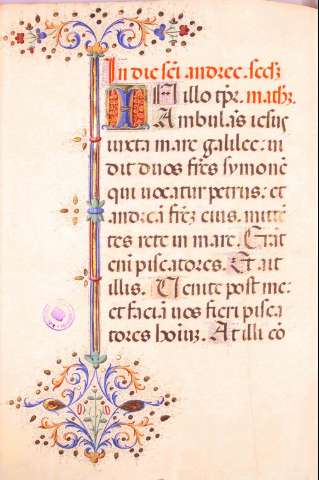 In die sci andree. secdȝ
In illo tpr. matheȝ.
Ambulās iesus
iuxta mare galilee. ui
dit duos fr̄es symonē
qui uocatur petrus. et
andreā fr̄eȝ eius. mittē
tes rete in mare. Erāt
eni piscatores. Et ait
illis. Uenite post me:
et faciā uos fieri pisca
tores hoiuȝ. At illi cō